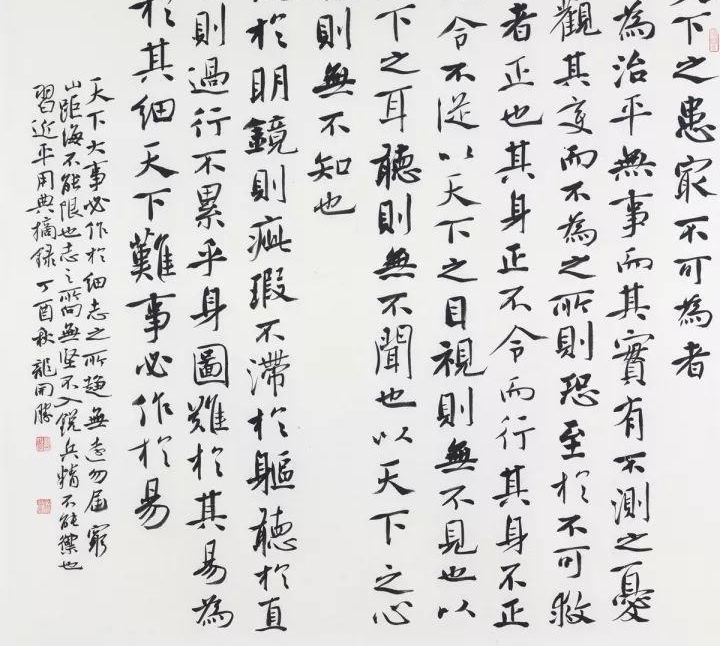 下之患最不可為者
為治平無事而其實有不測之憂
觀其变而不為之所則恐至於不可救
者正也其身正不令而行其身不正
令不從以天下之目視則無不見也以
天下之耳聽則無不聞也以天下之心
則無不知也
於明鏡則疵瑕不滯於軀聽於直
則過行不累乎身圖難於其易為
於其細天下難事必作於易
天下大事必作於細志之所趨無遠勿屆窮
山距海不能限也志之所向無坚不入銳兵精不能禦也
習近平用典摘録 丁酉秋 龍開勝